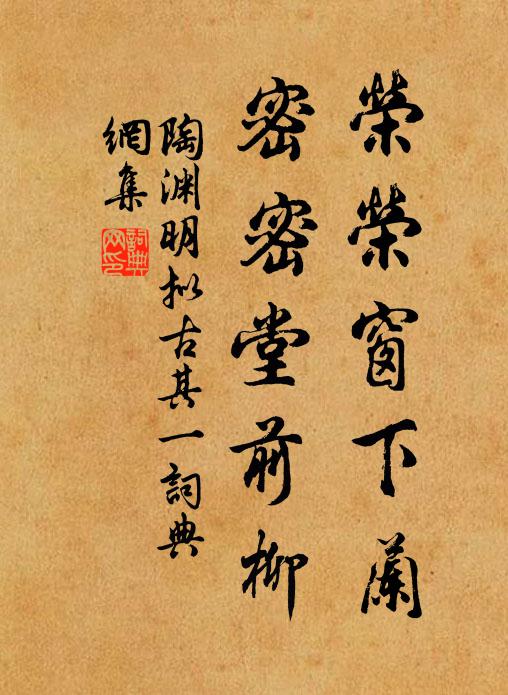 榮榮窗下蘭
密密堂前柳
陶渊明拟古其一詞典
網集
詞典
网印